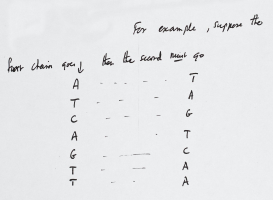 For example, suppose the
first chain goes ↓ then the second must go
A - - - - - T
T - - - - A
C - - - - G
A - - - T
G - - — C
T - - — A
T - - — A